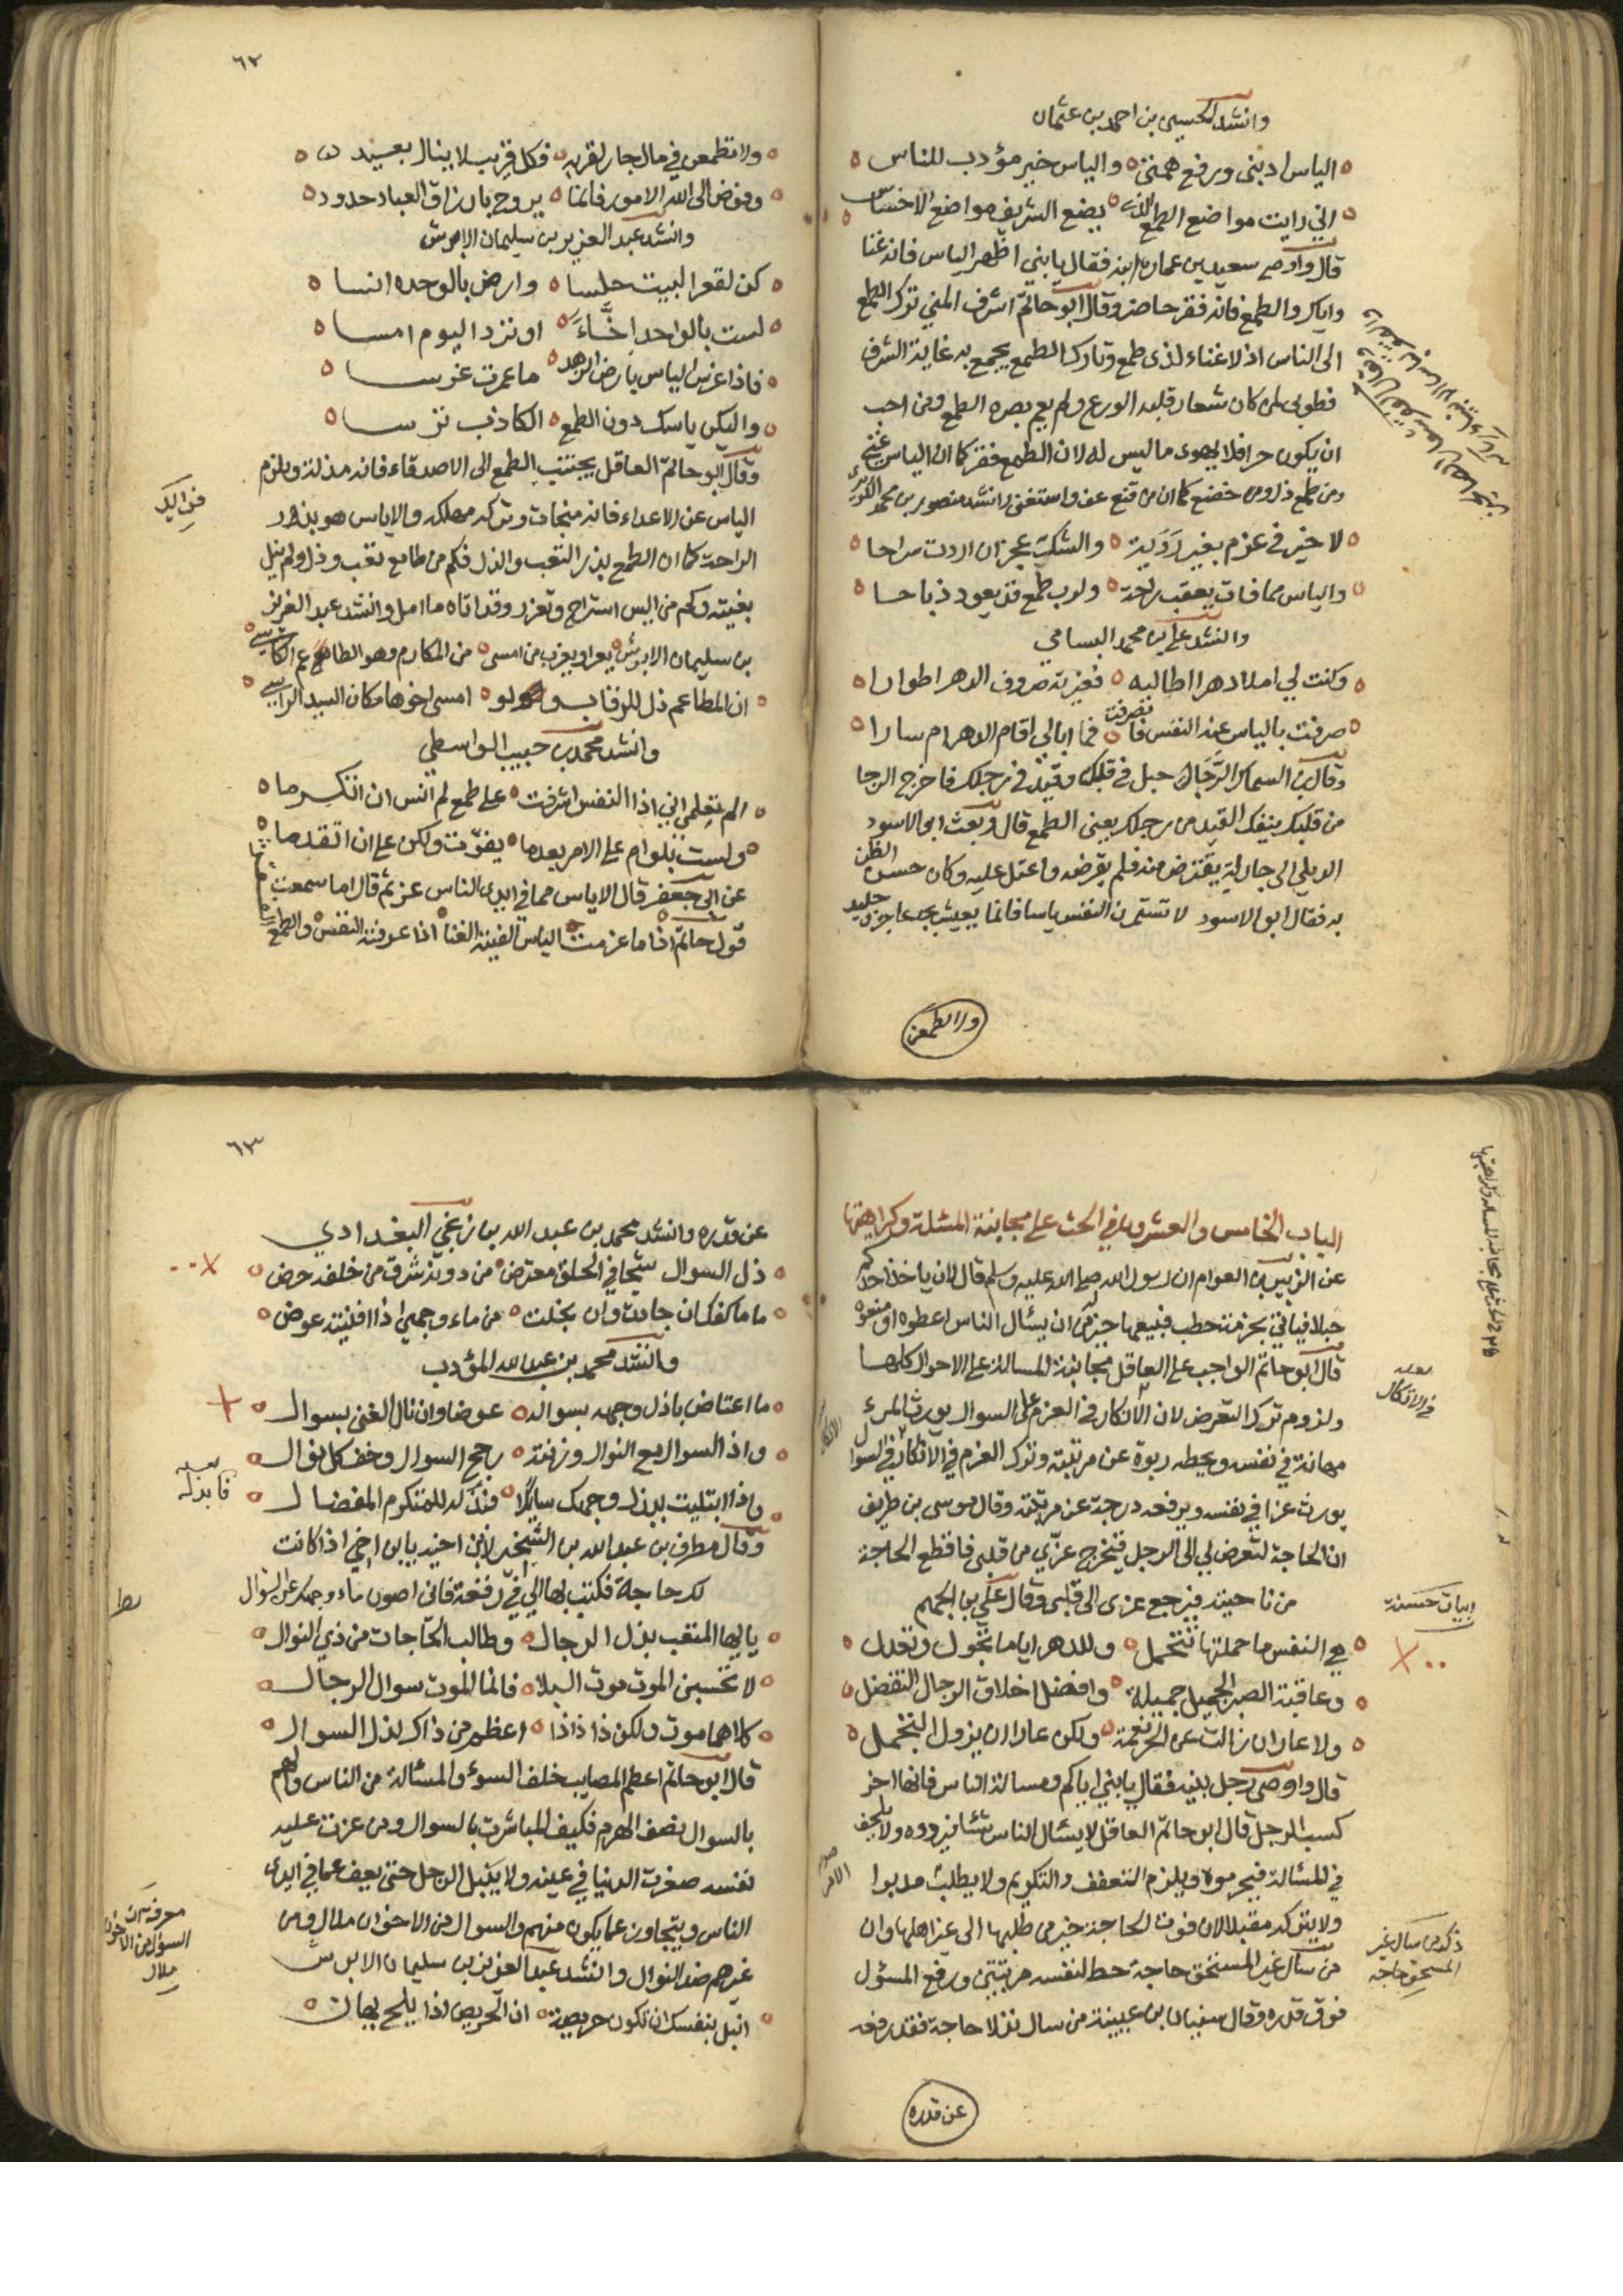 وانشد الحسين بن احمد بن عثمان
الياس ادبنى ورفع همتى والياس خير مؤدب للناس
اني رايت مواضع الطمع الذى يضع الشريف مواضع الاخساس
قال واوصى سعيد بن عمارة ابنه فقال يا بني اظهر الياس فانه غنا
واياك والطمع فانه فقر حاضر وقال ابو حاتم اشرف المني ترك الطمع
الى الناس اذ لا غناء لذى طمع وتارك الطمع يجمع به غاية الشرف
فطوبى لمن كان شعار قلبه الورع ولم يعم بصره الطمع ومن احب
ان يكون حرا فلا يهوى ما ليس له لان الطمع فقر كما ان الياس غنى
ومن طمع ذل ومن خضع كما ان من قنع عف واستغنى وانشد منصور بن محمد الكريزى
لا خير في عزم بغير رَوَية والشك عجز ان اردت سراحا
والياس مما فات يعقب راحة ولرب طمع قد يعود ذباحا
وانشد علي بن محمد البسامي
وكنت لي املا دهرا اطالبه فغيرته صروف الدهر اطوارا
صرفت بالياس عنه النفس فانصرفت فما ابالي اقام الدهر ام سارا
وقال بن السماك الرَّجَا حبل في قلبك وقيد في رجلك فاخرج الرجا
من قلبك ينفك القيد من رجلك يعنى الطمع قال وبعث ابو الاسود
الديلي الى جار له يقترض منه فلم يقرضه واعتل عليه وكان حسن الظن
به فقال ابو الاسود لا تشعرن النفس ياسا فانما يعيش بجد عاجز وجليد
ولا تطمعن
٦٢
ولا تطمعن في مال جار لقربه فكل قريب لا ينال بعيد
وفوض الى الله الامور فانما يروح بارزاق العباد حدود
وانشد عبد العزيز بن سليمان الابرش
كن لقعر البيت حلسا وارض بالوحده انسا
لست بالواحد اخَّاءً او ترد اليوم امسا
فاذا غرس الياس بارض الزهد ما عمرت غرسا
وليكن ياسك دون الطمع الكاذب ترسا
وقال ابو حاتم العاقل يجتنب الطمع الى الاصدقاء فانه مذلة ويلزم
الياس عن الاعداء فانه منجاة وتركه مهلكه والاياس هو بذر
الراحة كما ان الطمع بذر التعب والذل فكم من طامع تعب وذل ولم ينل
بغيته وكم من ايس استراح وتعزز وقد اتاه ما امل وانشد عبد العزيز
بن سليمان الابرش من المكارم وهو الطاعم الكاسي
ان المطاعم ذل للرقاب ولو امسى اخوها مكان السيد الراسي
وانشد محمد بن حبيب الواسطي
الم تعلمي اني اذا النفس اشرفت علي طمع لم انس ان اتكرما
ولست بلوام علي الامر بعدما يفوت ولكن علي ان اتقدما
عن ابى جعفر قال الاياس مما في ايدى الناس عز ثم قال اما سمعت
قول حاتم اذا ما عزمت الياس الفيته الغنا اذا عرفته النفس والطمع
الباب الخامس والعشرون في الحث على مجانبة المسئلة وكراهيتها
عن الزبير بن العوام ان رسول الله صلى الله عليه وسلم قال لان ياخذ احدكم
حبلا فياتي بحزمة حطب فيبيعها خير له من ان يسأل الناس اعطوه او منعوه
قال ابو حاتم الواجب على العاقل مجانبة المسالة على الاحوال كلها
ولزوم ترك التعرض لان الانكار في العزم على السوال يورث المرء
مهانة في نفسه ويحطه ربوة عن مرتبته وترك العزم في الانكار في السوال
يورث عزا في نفسه ويرفعه درجة عن مرتبته وقال موسى بن طريف
ان الحاجة لتعرض لي الى الرجل فتخرج عزي من قلبى فاقطع الحاجة
من ناحيته فيرجع عزى الى قلبى وقال علي بن الجهم
هي النفس ما حملتها تتحمل وللدهر ايام تجول وتعدل
وعاقبة الصبر الجميل جميلة وافضل اخلاق الرجال التفضل
ولا عار ان زالت عن الحر نعمة ولكن عارا ان يزول التجمل
قال واوصى رجل بنيه فقال يا بني اياكم ومسالة الناس فانها اخر
كسب الرجل قال ابو حاتم العاقل لا يسئال الناس شئا فيردوه ولا يلحف
في المسئالة فيحرموه ويلزم التعفف والتكريم ولا يطلب مدبرا
ولا يترك مقبلا لان فوت الحاجة خير من طلبها الى غير اهلها وان
من سأل غير المستحق حاجة حط لنفسه مرتبتين ورفع المسئول
فوق قدره وقال سفيان بن عيينة من سال نذلا حاجة فقد رفعه
عن قدره
ابيات حسنة
ذكر من سأل غير
المستحق حاجة
٦٣
عن قدره وانشد محمد بن عبد الله بن زنجي البغدادي
ذل السوال شجا في الحلق معترض من دونه شرق من خلفه حرض
ما ماء كفك ان جادت وان بخلت من ماء وجهي اذا افنيته عوض
وانشد محمد بن عبد الله المؤدب
ما اعتاض باذل وجهه بسواله عوضا وان نال الغنى بسوال
واذا السوال مع النوال وزنته رجح السوال وخف كل نوال
واذا ابتليت ببذل وجهك سايلا فابذله للمتكرم المفضال
وقال مطرف بن عبد الله بن الشخير لابن اخيه يا ابن اخي اذا كانت
لك حاجة فكتب بها الي في رقعة فانى اصون ماء وجهك عن السوال
يا ايها المتعب بذل الرجال وطالب الحاجات من ذي النوال
لا تحسبن الموت موت البلا فانما الموت سوال الرجال
كلاهما موت ولكن ذا اعظم من ذاك لذل السوال
قال ابو حاتم اعظم المصايب خلف السوء والمسئالة من الناس والهم
بالسوال نصف الهرم فكيف المباشرة بالسوال ومن عزت عليه
نفسه صغرت الدنيا في عينه ولا ينبل الرجل حتى يعف عما في ايدى
الناس ويتجاوز عما يكون منهم والسوال من الاخوان ملال ومن
غيرهم ضد النوال وانشد عبد العزيز بن سليمان الابرش
انبل بنفسك ان تكون حريصة ان الحريص اذا يلح يهان
فابذله
السؤال من الاخوان
ملال